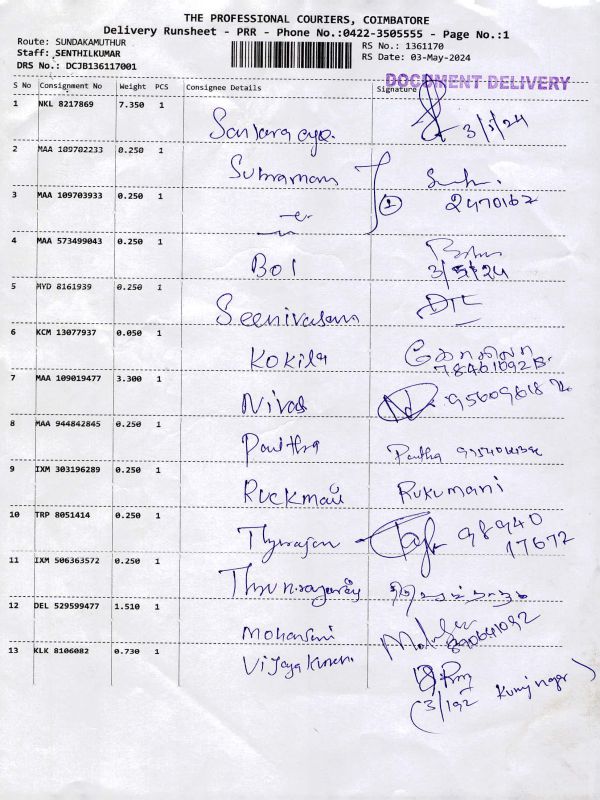 THE PROFESSIONAL COURIERS, COIMBATORE
Delivery Runsheet - PRR - Phone No.:0422-3505555 - Page No.:1
Route: SUNDAKAMUTHUR
Staff: SENTHILKUMAR
DRS No.: DCJB136117001
RS No.: 1361170
RS Date: 03-May-2024
DOCUMENT DELIVERY
S No Consignment No Weight PCS Consignee Details Signature
1 NKL 8217869 7.350 1
3/5/24
2 MAA 109702233 0.250 1
Subramani
3 MAA 109703933 0.250 1
2470167
4 MAA 573499043 0.250 1
BOI
3/5/24
5 MYD 8161939 0.250 1
Seenivasana
6 KCM 13077937 0.050 1
Kokila
கோகிலா
7 MAA 109019477 3.300 1
Nivas
8 MAA 944842845 0.250 1
Pavithra
9 IXM 303196289 0.250 1
Ruckmani Rukumani
10 TRP 8051414 0.250 1
98940
17672
11 IXM 506363572 0.250 1
12 DEL 529599477 1.510 1
Mohansini
13 KLK 8106082 0.730 1
Vijayakumari
3/192